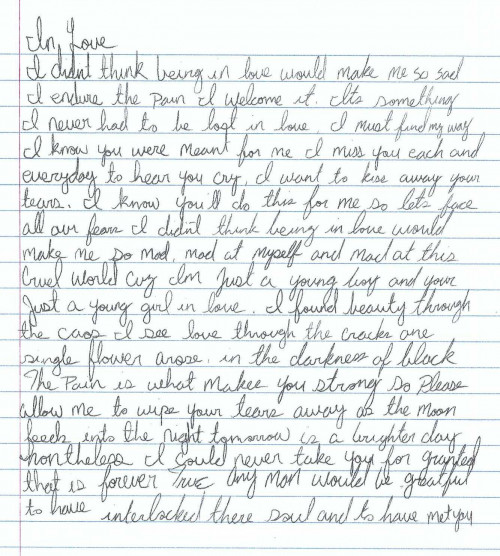 In, Love
I didnt think being in love would make me so sad
I endure the pain I welcome it. Its something
I never had to be lost in love. I must find my way
I know you were meant for me I miss you each and
everyday to hear you cry, I want to kiss away your
tears. I know you'll do this for me so let's face
all our fears I didnt think being in love would
make me so mad, mad at myself and mad at this
Cruel World Cuz Im Just a young boy and your
Just a young girl in love. I found beauty through
the caos I see love through the cracks one
single flower arose. in the darkness of black
The Pain is what makes you strong so Please
allow me to wipe your tears away as the moon
into the night tomorrow is a brighter day
nontheless I Could never take you for granted
that is forever True Any Man would be greatful
to have interlocked there soul and to have met you